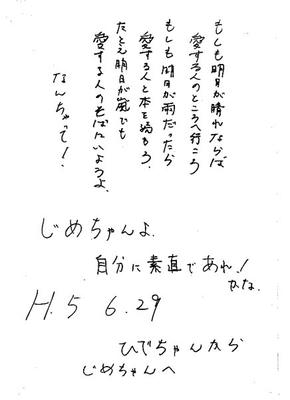 もしも明日が晴れならば
愛する人のところへ行こう
もしも明日が雨だったら
愛する人と本を読もう、
たとえ明日が嵐でも
愛する人のそばにいようよ、
なんちゃって!
じめちゃんよ、
自分に素直であれ!
かな。
H.5 6.29
ひでちゃんから
じめちゃんへ